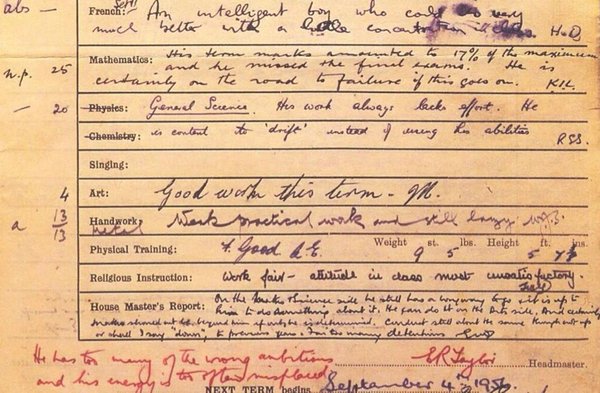 abs — French: An intelligent boy who could do very
much better with a little concentration in class HoD
n.p. 25 Mathematics: His term marks amounted to 17% of the maximum
and he missed the final exams. He is
certainly on the road to failure if this goes on.
— 20 Physics: General Science. His work always lacks effort. He
Chemistry: is content to 'drift' instead of using his abilities RSS.
Singing:
4 Art: Good work this term - M.
a 13/13 Handwork: Metal Weak practical work and still lazy
Physical Training: F. Good A.E. Weight 9 st. 5 lbs. Height 5 ft. 7½ ins.
Religious Instruction: Work fair - attitude in class most unsatisfactory.
House Master's Report: On the side he still has a long way to go & it is up to
him to do something about it. He can do it on the Arts side, and certainly
should not be beyond him if only he is determined. Conduct still about the same
or shall I say "down", to previous years. Far too many detentions
He has too many of the wrong ambitions
E R Taylor Headmaster.
and his energy is too often misplaced
NEXT TERM begins September 4th 1956